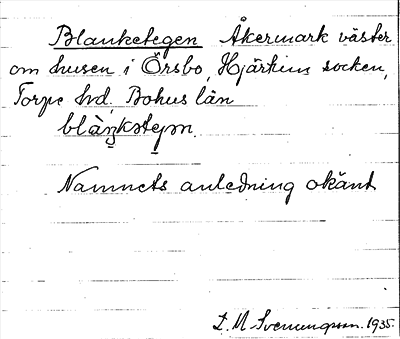 Blanketegen Åkermark väster
om husen i Örsbo, Hjärtums socken,
Torpe hd. Bohus län
blàŋkstejən.
Namnets anledning okänt
L. M. Svenungsson. 1935.